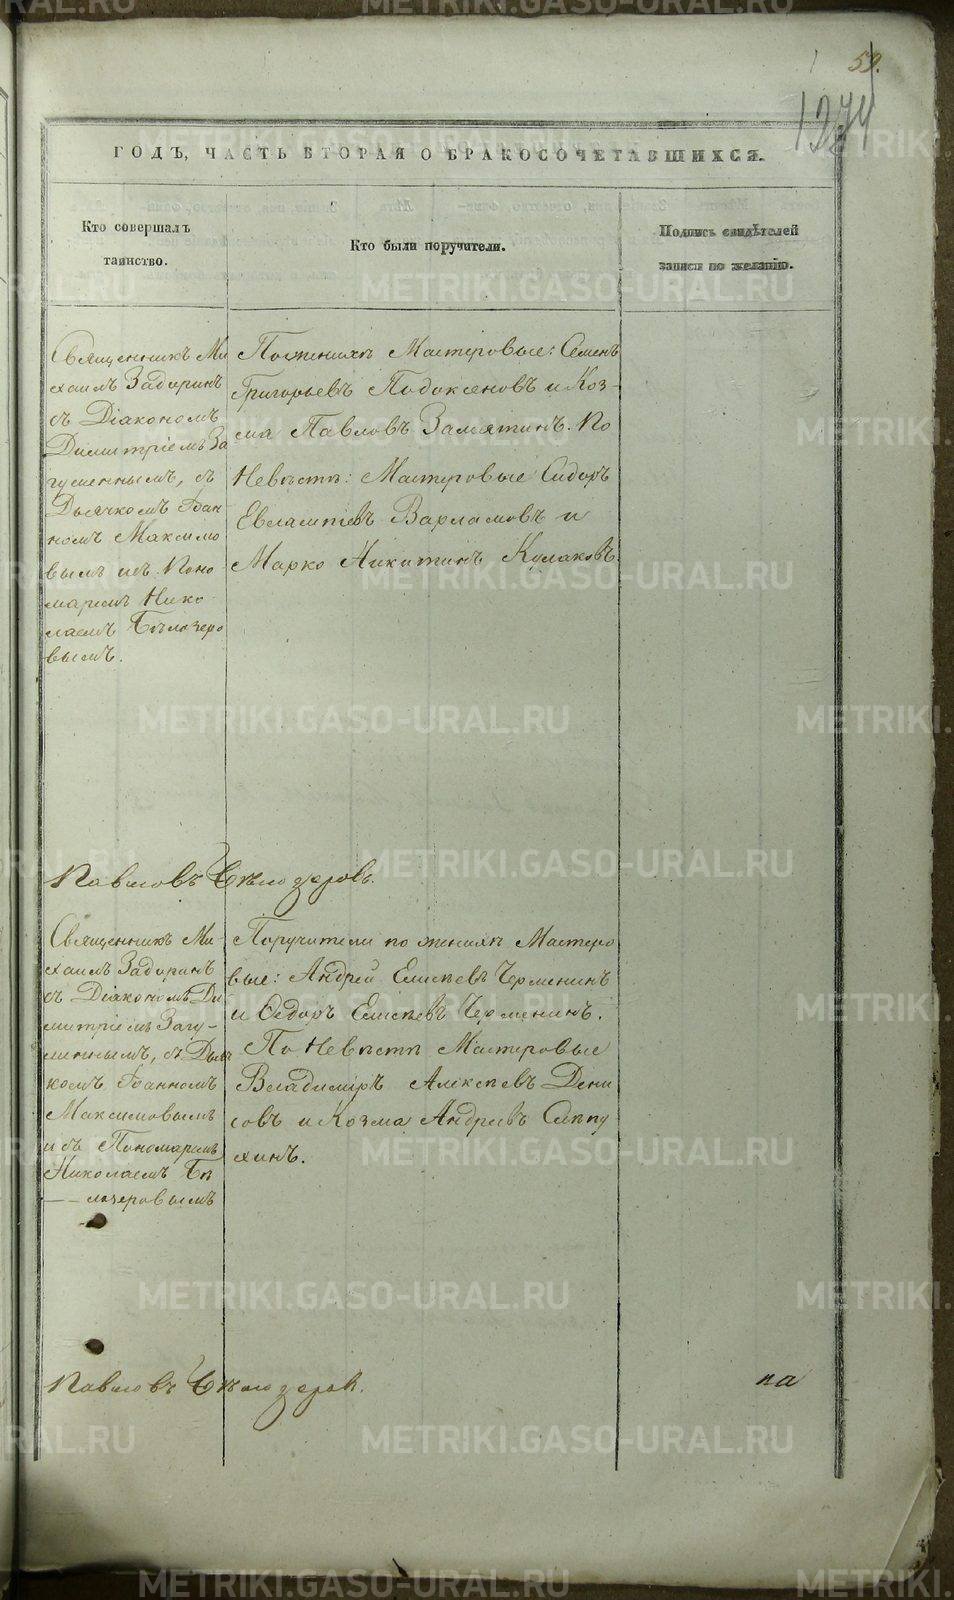 59.
1274
ГОДЪ, ЧАСТЬ ВТОРАЯ О БРАКОСОЧЕТАВШИХСЯ.
Кто совершалъ
таинство.
Кто были поручители.
Подпись свидѣтелей
записи по желанію.
Священникъ Ми
хаилъ Задоринъ
съ Діакономъ
Димитріемъ За
гуменнымъ, съ
Дьячкомъ Іоан-
номъ Максимо
вымъ и съ Поно
маремъ Нико
лаемъ Бѣлозеро
вымъ.
По женихѣ Мастеровые: Семенъ
Григорьевъ Подоксеновъ и Коз-
ма Павловъ Замятинъ. По
Невѣстѣ: Мастеровые Сидоръ
Евлампіевъ Варламовъ и
Марко Никитинъ Кулаковъ
Павловъ Бѣлозеровъ.
Священникъ Ми-
хаилъ Задоринъ
съ Діакономъ Ди
митріемъ Загу-
меннымъ, съ Дьяч
комъ Іоанномъ
Максимовымъ
и съ Пономаремъ
Николаемъ Бѣ
лозеровымъ
Поручители по женихѣ Мастеро
вые: Андрей Елисѣевъ Черменинъ
и Ѳедоръ Елисѣевъ Черменинъ.
По Невѣстѣ Мастеровые
Владиміръ Алексѣевъ Дени
совъ и Козма Андреевъ Сѣпу
хинъ.
Павловъ Бѣлозеровъ.
на
METRIKI.GASO-URAL.RU